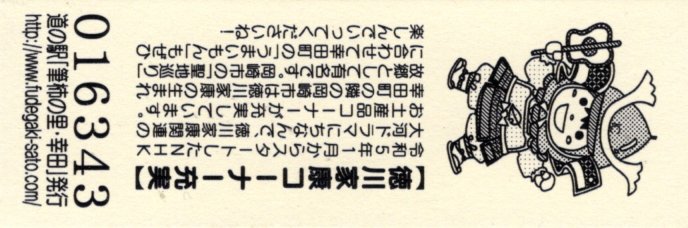 【徳川家康コーナー充実】
令和5年1月からスタートしたNHK
大河ドラマにちなんで、徳川家康関連の
お土産品コーナーが充実しています。
幸田町の隣の岡崎市は徳川家康の生まれ
故郷として有名です。岡崎市の「聖地巡り」
に合わせて幸田町の「うまいもん」もぜひ
楽しんでいってくださいね！
016343
道の駅「筆柿の里・幸田」発行
http://www.fudegaki-sato.com/